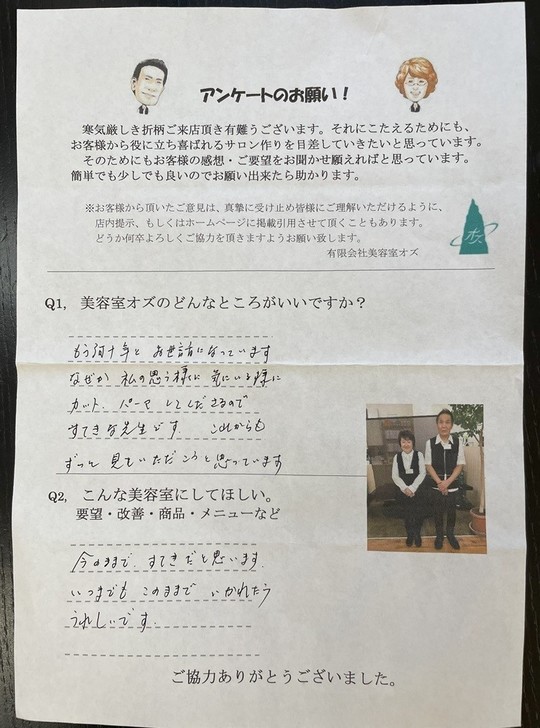 アンケートのお願い！
寒気厳しき折柄ご来店頂き有難うございます。それにこたえるためにも、
お客様から役に立ち喜ばれるサロン作りを目差していきたいと思っています。
そのためにもお客様の感想・ご要望をお聞かせ願えればと思っています。
簡単でも少しでも良いのでお願い出来たら助かります。
※お客様から頂いたご意見は、真摯に受け止め皆様にご理解いただけるように、
店内提示、もしくはホームページに掲載引用させて頂くこともあります。
どうか何卒よろしくご協力を頂きますようお願い致します。
有限会社美容室オズ
オズ
Q1, 美容室オズのどんなところがいいですか？
もう何十年と お世話になっています
なぜか 私の思う様に 気にいる様に
カット、パーマ してくださるので
すてきな先生です これからも
ずっと 見ていただこうと思っています
Q2, こんな美容室にしてほしい。
要望・改善・商品・メニューなど
今のままで すてきだと思います
いつまでも このままで いかれたら
うれしいです。
ご協力ありがとうございました。